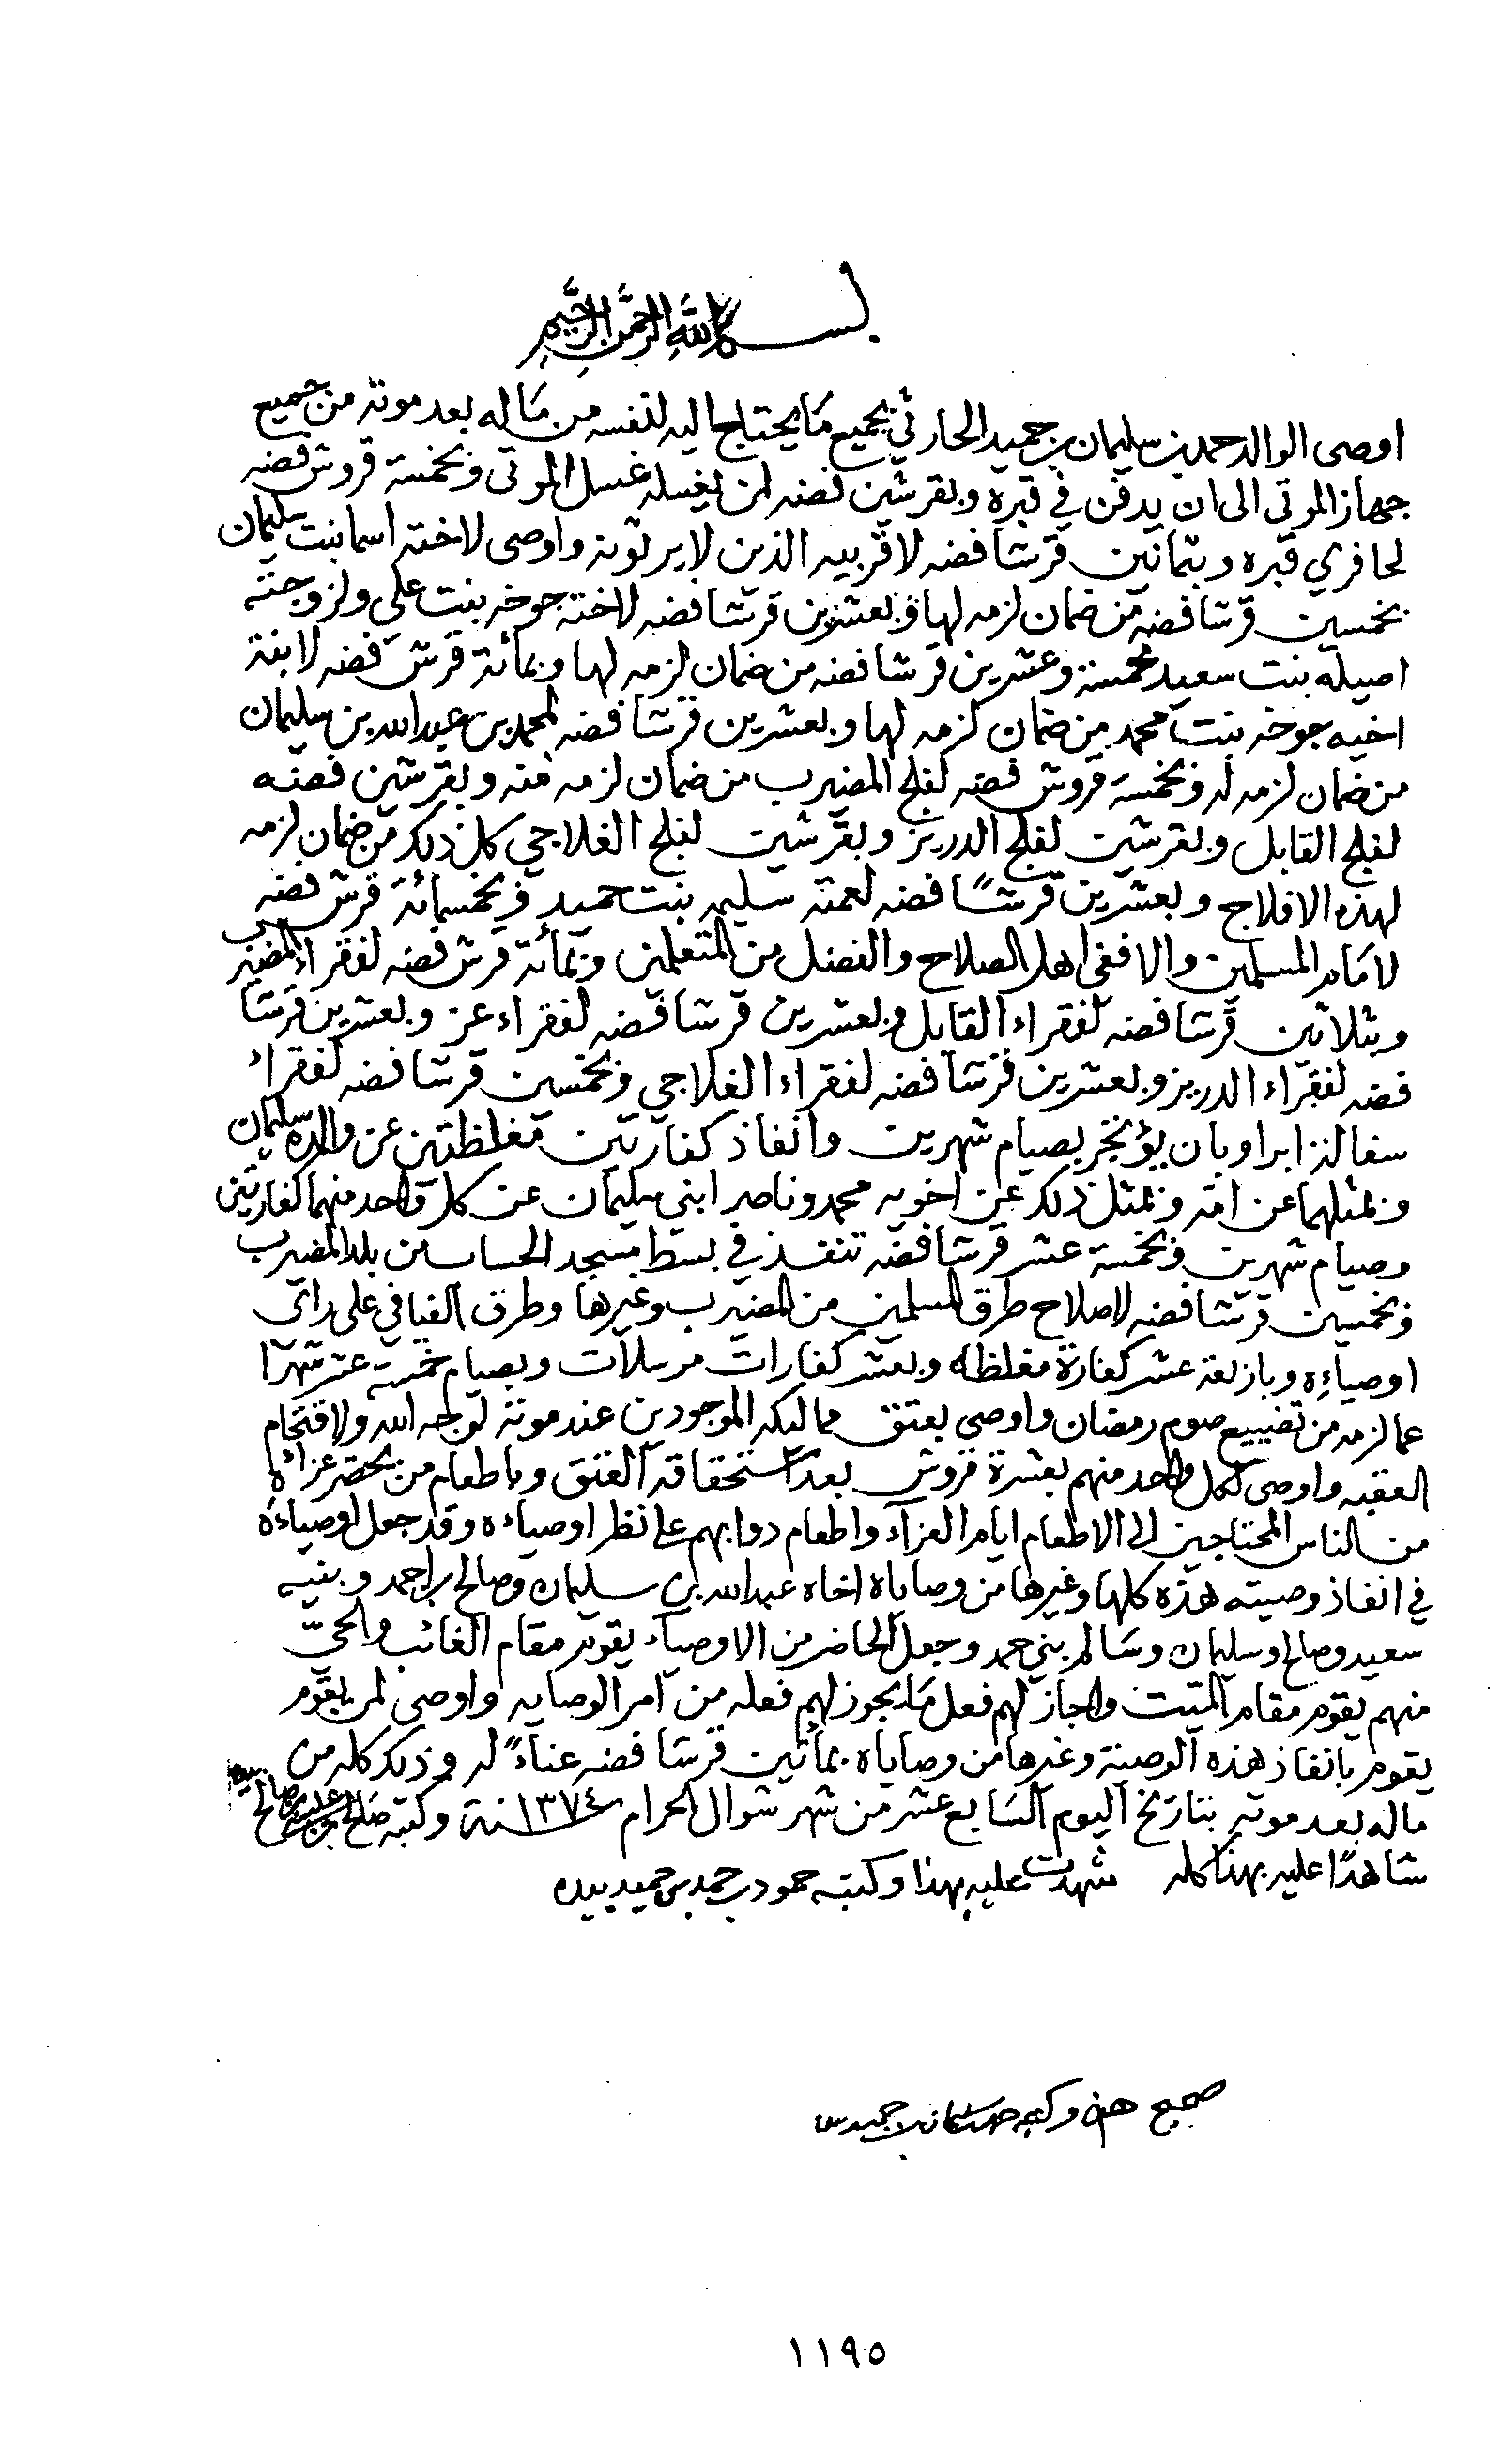 بسم الله الرحمن الرحيم
اوصى الوالد حمد بن سليمان بن حميد الحارثي بجميع ما يحتاج اليه لنفسه من ماله بعد موته من جميع
جهاز الموتى الى ان يدفن في قبره وبقرشين فضه لمن يغسله غسل الموتى وبخمسة قروش فضه
لحافري قبره وبثمانين قرشا فضه لاقربيه الذين لا يرثونه واوصى لاخته اسما بنت سليمان
بخمسين قرشا فضه من ضمان لزمه لها وبعشرين قرشا فضه لاخته جوخه بنت علي ولزوجته
اصيله بنت سعيد بخمسة وعشرين قرشا فضه من ضمان لزمه لها وبمائة قرش فضه لابنة
اخيه جوخه بنت محمد من ضمان لزمه لها وبعشرين قرشا فضه لمحمد بن عبدالله بن سليمان
من ضمان لزمه له وبخمسة قروش فضه لفلج المضيرب من ضمان لزمه منه وبقرشين فضه
لفلج القابل وبقرشين لفلج الدريز وبقرشين لفلج الغلاجي كل ذلك من ضمان لزمه
لهذه الافلاج وبعشرين قرشًا فضه لعمته سليمه بنت حميد وبخمسمائة قرش فضه
لامام المسلمين والا ففي اهل الصلاح والفضل من المتعلمين وبمائة قرش فضه لفقراء المضيرب
وبثلاثين قرشا فضه لفقراء القابل وبعشرين قرشا فضه لفقراء عز وبعشرين قرشا
فضه لفقراء الدريز وبعشرين قرشا فضه لفقراء الغلاجي وبخمسين قرشا فضه لفقراء
سفالة ابرا وبان يؤتجر بصيام شهرين وانفاذ كفارتين مغلظتين عن والده سليمان
وبمثلهما عن امه وبمثل ذلك عن اخويه محمد وناصر ابني سليمان عن كل واحد منهما كفارتين
وصيام شهرين وبخمسة عشر قرشا فضه تنفذ في بسط مسجد الحساسن بلد المضيرب
وبخمسين قرشا فضه لاصلاح طرق المسلمين من المضيرب وغيرها وطرق الفيافي على راي
اوصياءه وباربعة عشر كفارة مغلظه وبعشر كفارات مرسلات وبصيام خمسة عشر شهرا
عما لزمه من تضييع صوم رمضان واوصى بعتق مماليكه الموجودين عند موته لوجه الله ولاقتحام
العقبه واوصى لكل واحد منهم بعشرة قروش بعد استحقاقه العتق وباطعام من يحضر عزاءه
من الناس المحتاجين الى الاطعام ايام العزآء واطعام دوابهم على نظر اوصياءه وقد جعل اوصياءه
في انفاذ وصيته هذه كلها وغيرها من وصاياه اخاه عبدالله بن سليمان وصالح بن احمد وبنيه
سعيد وصالح وسليمان وسالم بني حمد وجعل الحاضر من الاوصياء يقوم مقام الغائب والحيّ
منهم يقوم مقام الميت واجاز لهم فعل ما يجوز لهم فعله من امر الوصايه واوصى لمن يقوم
يقوم بانفاذ هذه الوصية وغيرها من وصاياه بمائتين قرشا فضه عناءً له وذلك كله من
ماله بعد موته بتاريخ اليوم السابع عشر من شهر شوال الحرام سنة ١٣٧٤ وكتبه صالح بن علي بن صالح بيده
شاهدًا عليه بهذا كله شهدت عليه بهذا وكتبه حمود بن حمد بن حميد بيده
صحيح هذا وكتبه حمد بن سليمان بن حميد بيده
١١٩٥